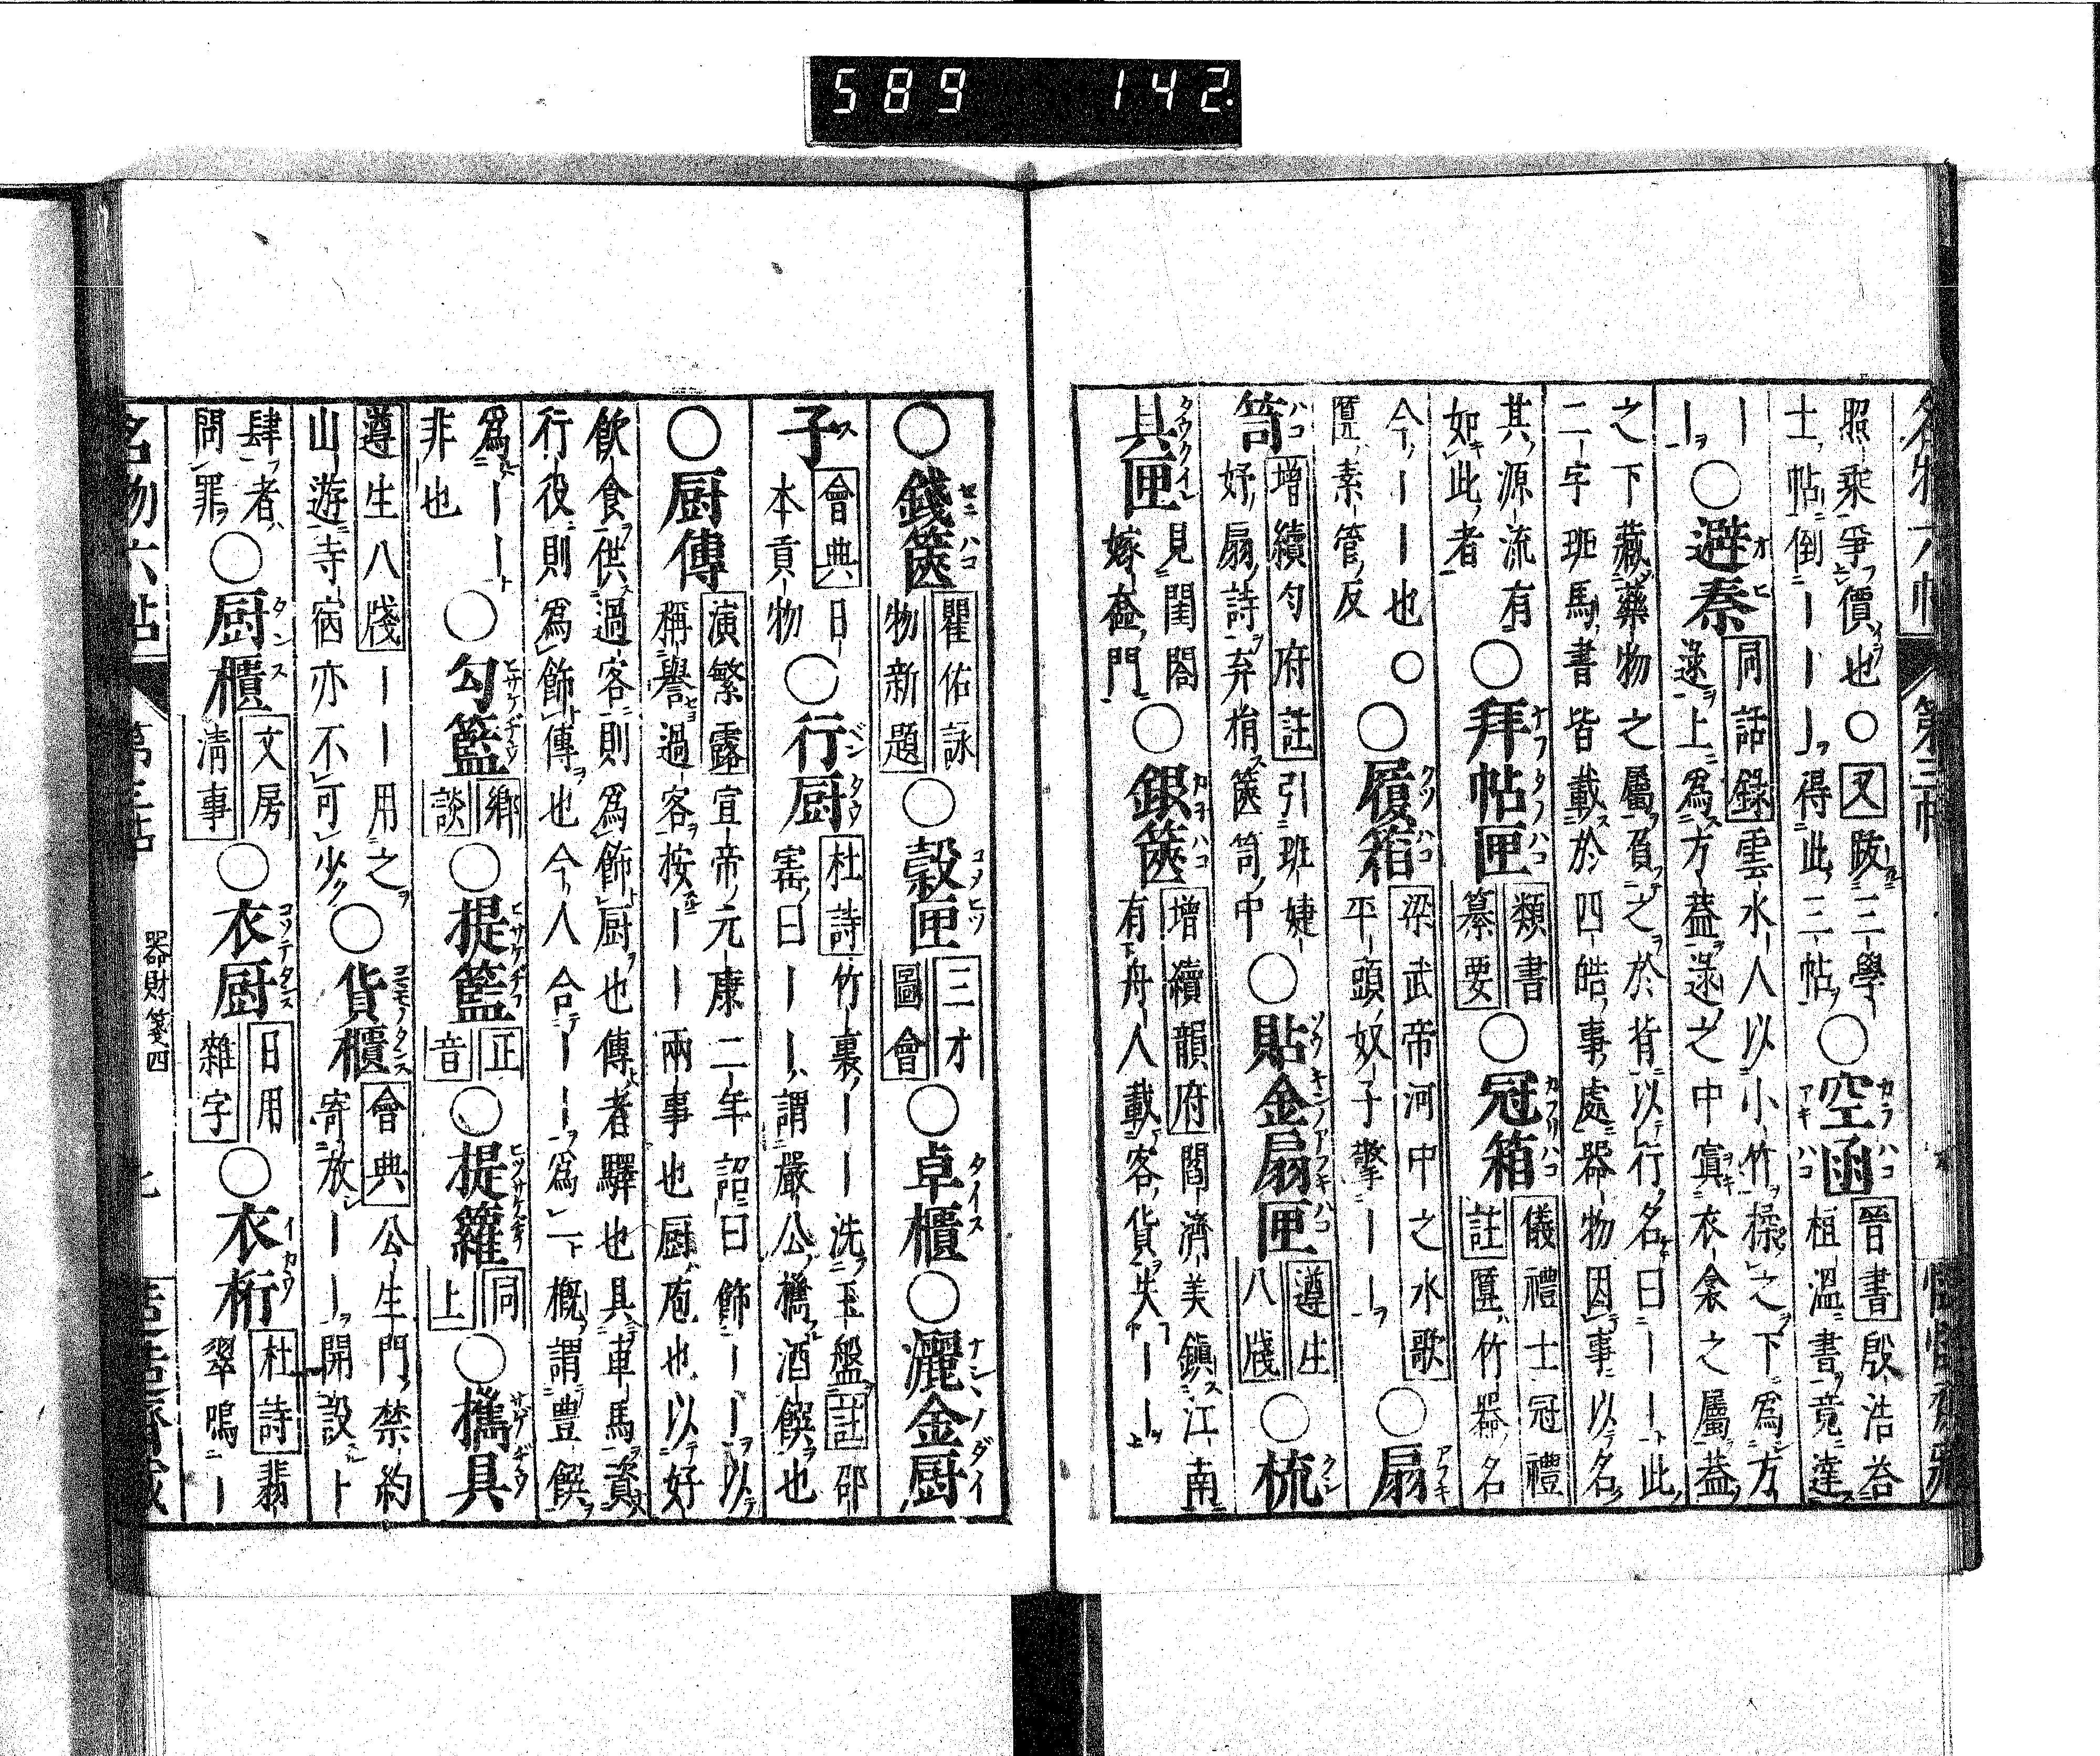 589 142
照乘爭價也○又跋三學
士帖倒ーーー得此三帖○空函晉書殷浩荅
桓溫書竟達
ーー○避秦同話錄雲水人以小竹為方
逐上為方葢逐之中寘衣衾之屬葢
之下藏藥物之屬負之於背以行名曰ーー此
二字班馬書皆載於四皓事處器物因事以名
其源流有
如此者○拜帖匣類書纂要○冠箱儀禮士冠禮
註匴竹器名
今ーーー也○
匴素管反○履箱梁武帝河中之水歌
平頭奴子擎ーー○扇
笥增續勻府註引班婕
妤扇詩弃捐篋笥中○貼金扇匣遵生八牋○梳
具匣見閨閤
嫁奩門○銀篋增續韻府閻濟美鎮江南
有舟人載客貨失ーー
○錢篋瞿佑詠物新題○穀匣三才圖會○卓櫃○灑金厨
子會典日
本貢物○行厨杜詩竹裏ーー洗玉盤註邵
寳曰ーー謂嚴公攜酒饌也
○厨傳演繁露宣帝元康二年詔曰飾ーー以
稱譽過客按ーー兩事也厨庖也以好
飲食供過客則為飾厨也傳者驛也具車馬資
行役則為飾傳也今人合ーー為一概謂豊饌
為ーー
非也○勾籃鄉談○提籃正音○提籮同上○攜具
遵生八牋ーー用之
山遊寺宿亦不可少○貨櫃會典公生門禁約
寄放ーー開設卜
肆者
問罪○厨櫃文房清事○衣厨日用雜字○衣桁杜詩翡
翠鳴ー
名物六帖 器財箋四